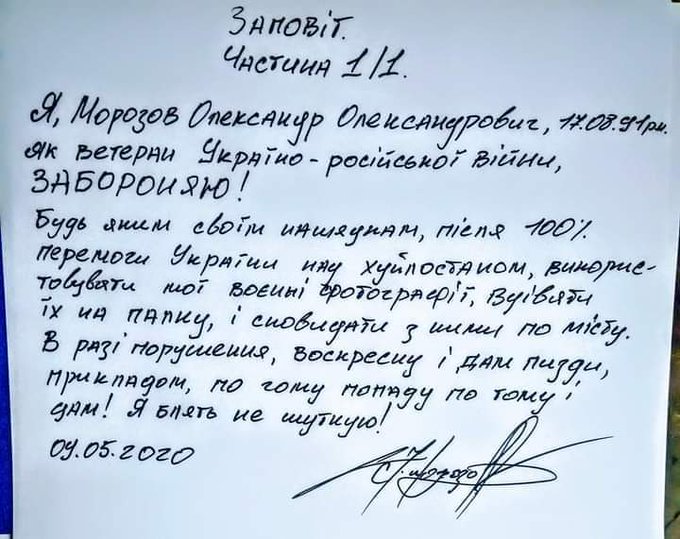 Заповіт.
Частина 1/1.
Я, Морозов Олександр Олександрович, 17.08.91рн.
як ветеран Україно-російської війни,
ЗАБОРОНЯЮ!
Будь яким своїм нащядкам, після 100%
перемоги України над хуйлостаном, викорис-
товувати мої воєнні фотографії, вдівяти
їх на палку, і сновидати з ними по місту.
В разі порушення, воскресну і дам пизди,
прикладом, по чому попаду по тому і
дам! Я блять не шуткую!
09.05.2020